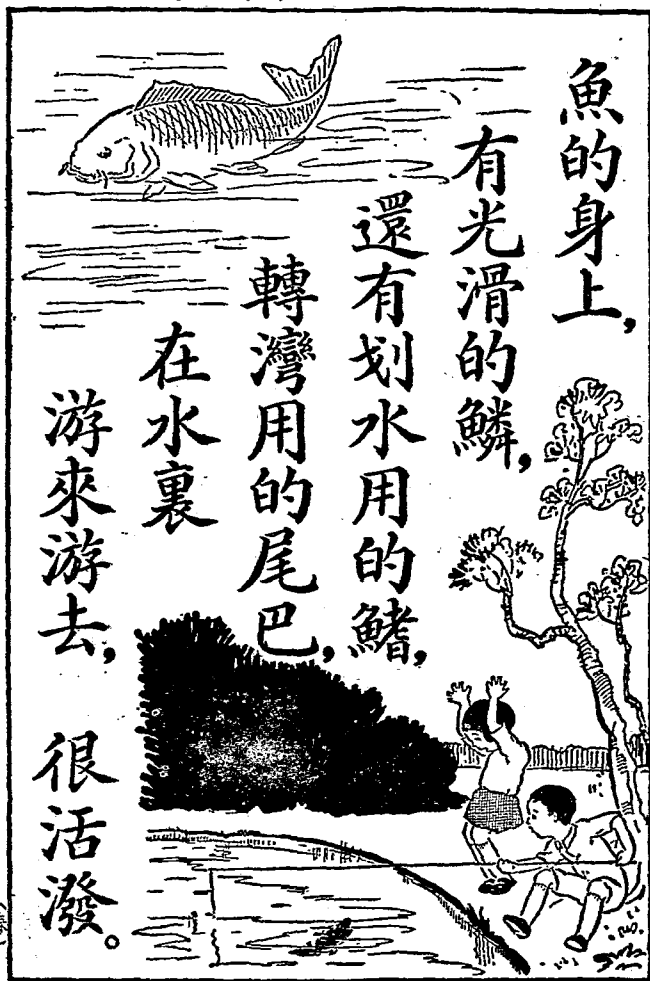 魚的身上，
有光滑的鱗，
還有划水用的鰭，
轉灣用的尾巴，
在水裏
游來游去，很活潑。